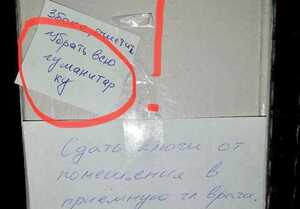 убрать всю
гуманитар
ку
Сдать ключи от
помещения в
приёмную гл. врача.